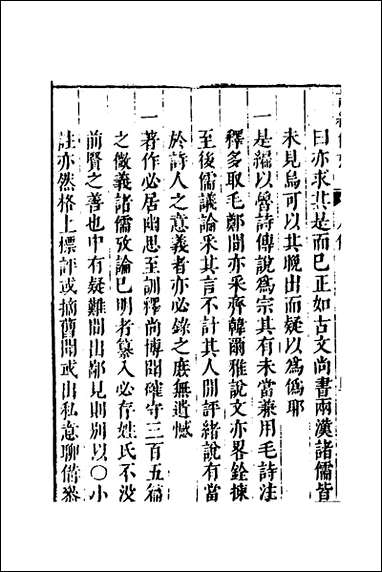 曰亦求其是而已正如古文尚書兩漢諸儒皆
未見烏可以其晚出而疑以為偽耶
一是編以魯詩傳說為宗其有未當兼用毛詩注
釋多取毛鄭間亦采齊韓爾雅說文亦畧銓揀
至後儒議論采其言不計其人閒評緒說有當
於詩人之意義者亦必錄之庶無遺憾
一著作必居幽思至訓釋尚博聞確守三百五篇
之微義諸儒攷論已明者纂入必存姓氏不没
前賢之善也中有疑難間出鄙見則別以〇小
註亦然格上標評或摘舊聞或出私意聊備叅